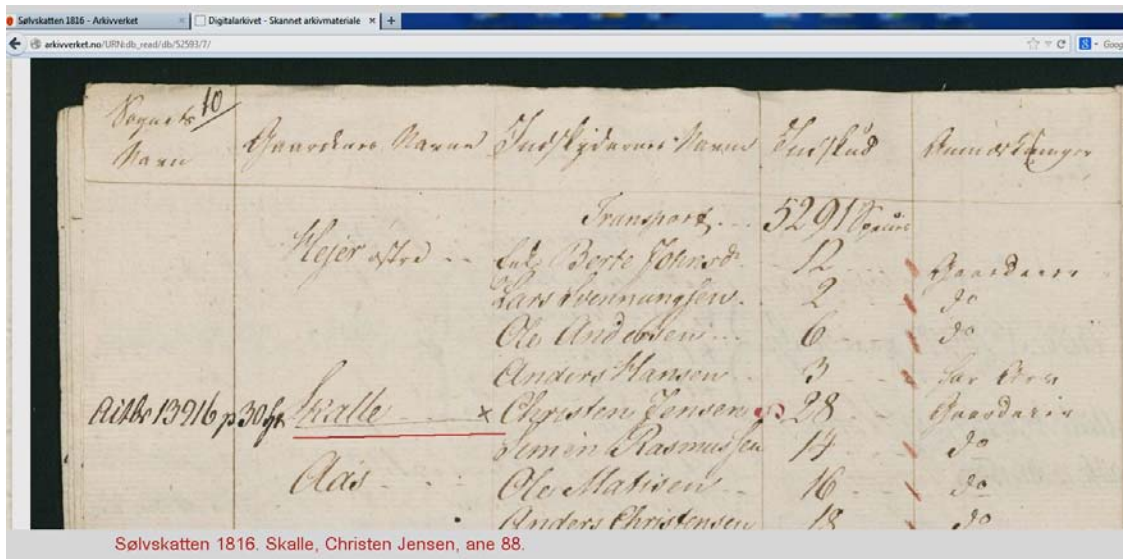 Sølvskatten 1816 - Arkivverket × Digitalarkivet - Skannet arkivmateriale × +
arkivverket.no/URN:db_read/db/52593/7/ 8 - Goog
10
Sognets Navn Gaardenes Navne Indskydernes Navne Indskud Anmærkninger
Transport 5291
Hejer østre Berte Johnsd. 12 Gaardeier
Lars Svennungsen 2 do
Ole Andersen 6 do
Anders Hansen 3
13916 p 30 Skalle × Christen Jensen 28 Gaardeier
Simen Rasmussen 14 do
Aas Ole Matisen 16 do
Anders Christensen 18 do
Sølvskatten 1816. Skalle, Christen Jensen, ane 88.